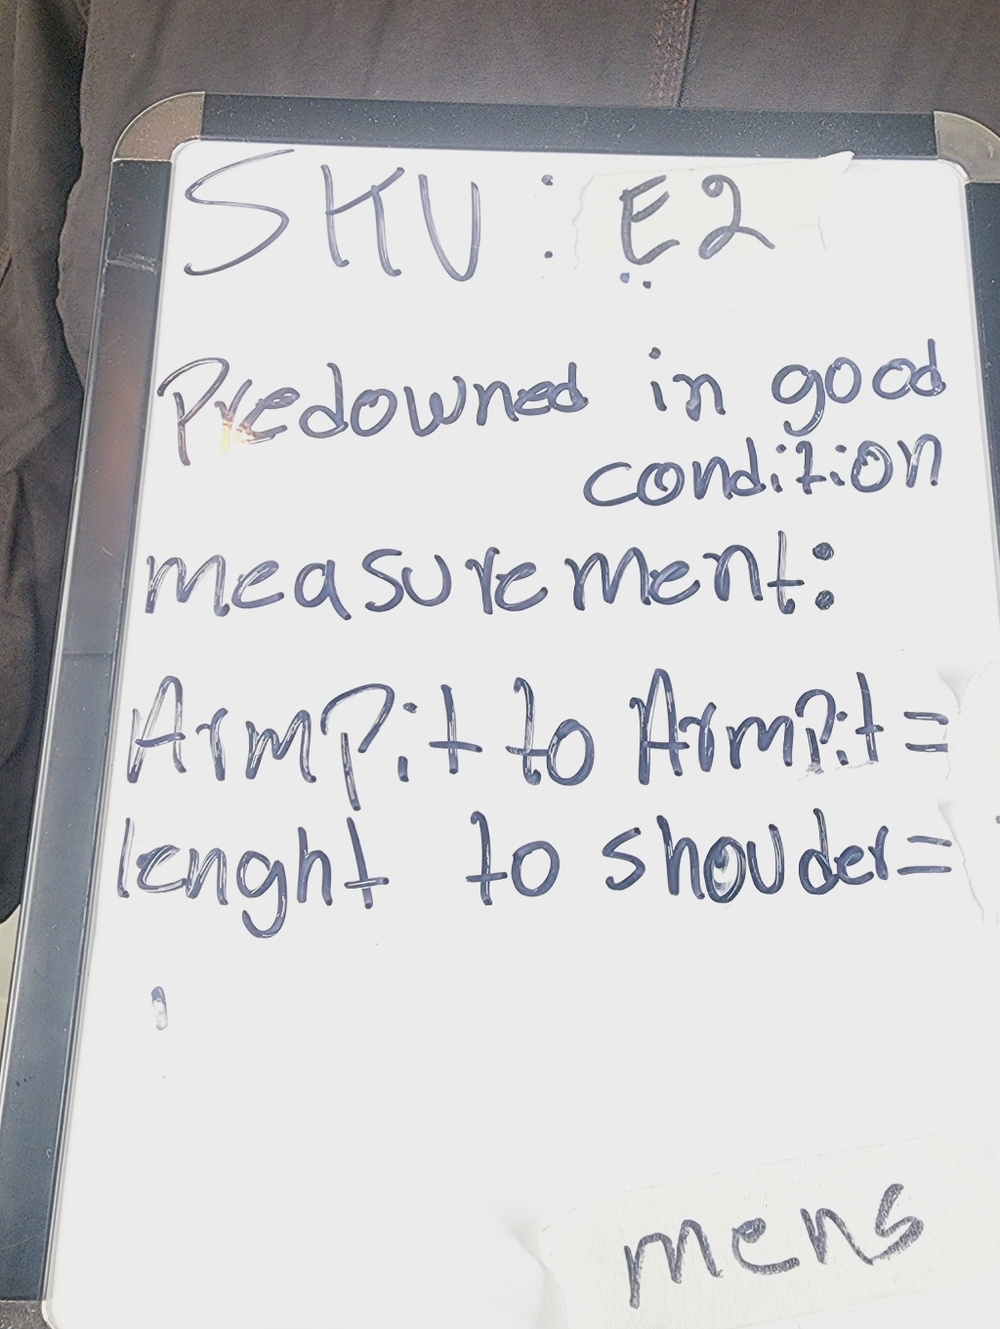 SKU: E2
Predowned in good
condition
measurement:
ArmPit to ArmPit =
lenght to shouder =
mens